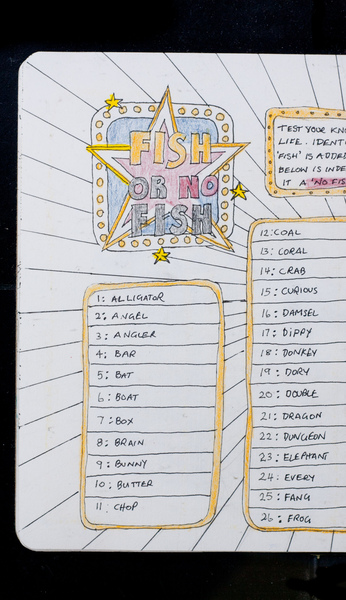 FISH
OR NO
FISH
TEST YOUR
LIFE. IDENT
'FISH' IS ADDE
BELOW IS INDE
IT A 'NO FIS
1: ALLIGATOR
2: ANGEL
3: ANGLER
4: BAR
5: BAT
6: BOAT
7: BOX
8: BRAIN
9: BUNNY
10: BUTTER
11: CHOP
12: COAL
13: CORAL
14: CRAB
15: CURIOUS
16: DAMSEL
17: DIPPY
18: DONKEY
19: DORY
20: DOUBLE
21: DRAGON
22: DUNGEON
23: ELEPHANT
24: EVERY
25: FANG
26: FROG